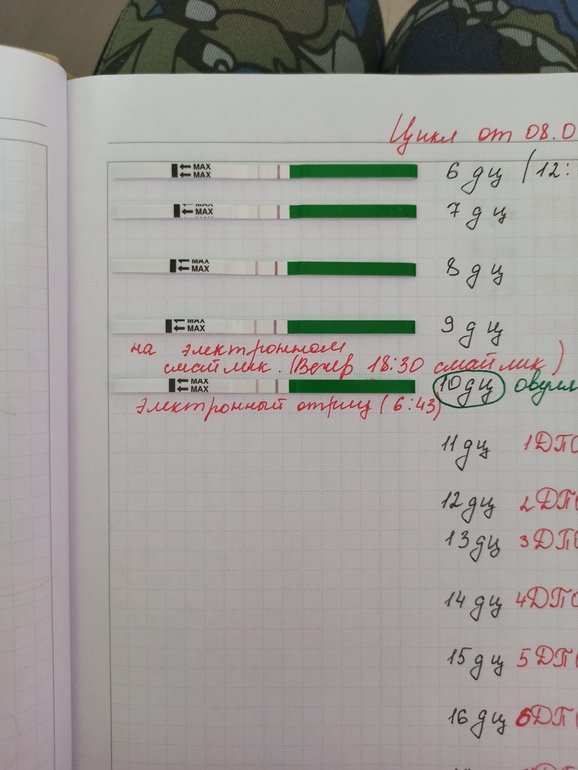 Цикл от 08.0
MAX
MAX
6 дц (12:
MAX
MAX
7 дц
MAX
MAX
8 дц
MAX
MAX
9 дц
на электронном
смайлик. (Вечер 18:30 смайлик)
MAX
MAX
10 дц овуля
Электронный отриц (6:43)
11 дц 1ДПО
12 дц 2ДПО
13 дц 3ДПО
14 дц 4ДПО
15 дц 5ДПО
16 дц 6ДПО